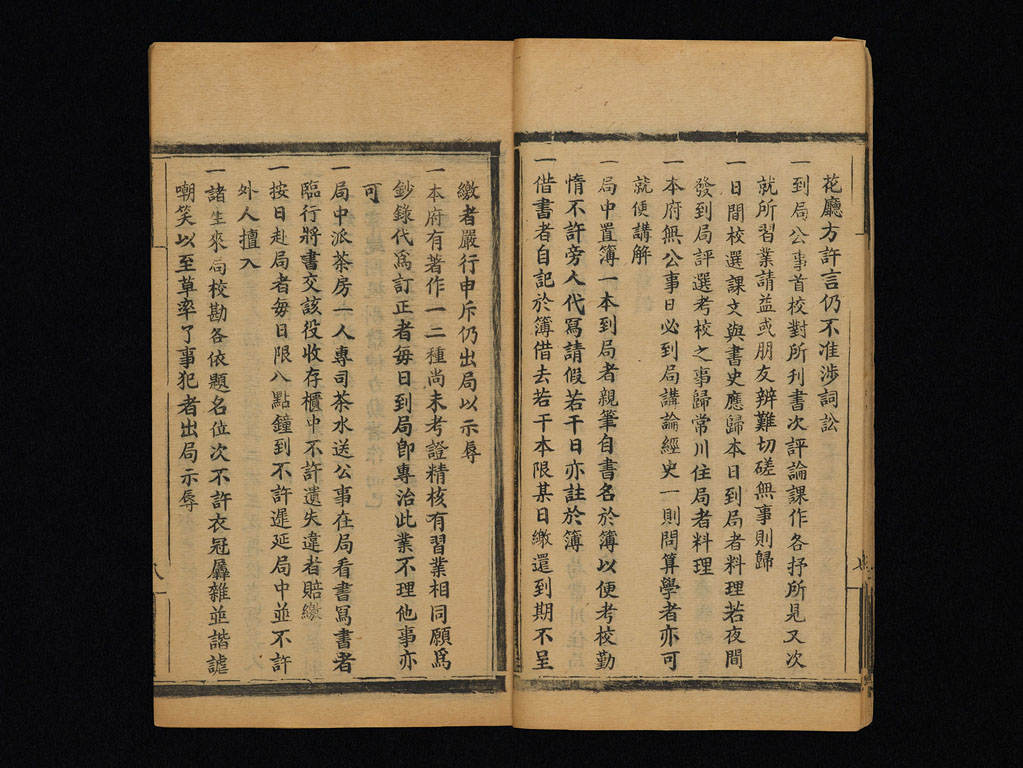 花廳方許言仍不准涉詞訟
一到局公事首校對所刊書次評論課作各抒所見又次
就所習業請益或朋友辨難切磋無事則歸
一日間校選課文與書史應歸本日到局者料理若夜間
發到局評選考校之事歸常川住局者料理
一本府無公事日必到局講論經史一則問算學者亦可
就便講解
一局中置簿一本到局者親筆自書名於簿以便考校勤
惰不許旁人代寫請假若干日亦註於簿
一借書者自記於簿借去若干本限某日繳還到期不呈
繳者嚴行申斥仍出局以示辱
一本府有著作一二種尚未考證精核有習業相同願爲
鈔錄代爲訂正者每日到局卽專治此業不理他事亦
可
一局中派茶房一人專司茶水送公事在局看書寫書者
臨行將書交該役收存櫃中不許遺失違者賠繳
一按日赴局者每日限八點鐘到不許遲延局中並不許
外人擅入
一諸生來局校勘各依題名位次不許衣冠麤雜並諧謔
嘲笑以至草率了事犯者出局示辱
八